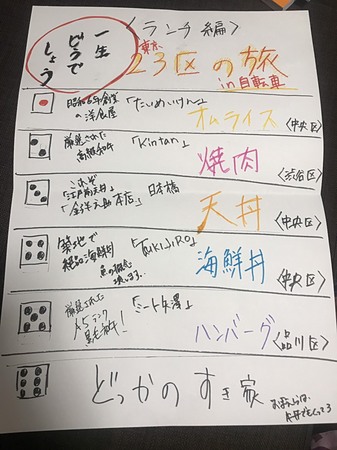 〈ランチ編〉
一生
どうで
しょう
東京
23区の旅
in 自転車
昭和6年創業
の洋食屋
「たいめいけん」
オムライス
〈中央区〉
厳選された
高級和牛
「Kintan」
焼肉
〈渋谷区〉
これぞ
「江戸前天丼」
日本橋
「金子半之助 本店」
天丼
〈中央区〉
築地で
絶品海鮮丼
「TUKIJIRO」
海鮮丼
〈中央区〉
厳選された
A5ランク
黒毛和牛!
「ミート矢澤」
ハンバーグ
〈品川区〉
どっかの すき家